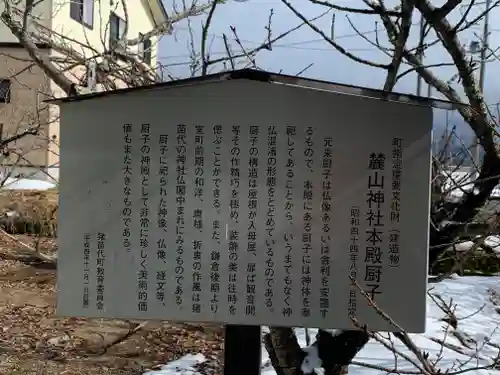 町指定重要文化財（建造物）
麓山神社本殿厨子
（昭和四十四年八月一日指定）
元来厨子は仏像あるいは舎利を安置す
るもので、本殿にある厨子には神体を
祀してあることから、いうまでもなく神
仏混淆の形をとどめているものである。
厨子の構造は屋根が入母屋、扉は観音開
等その作精巧を極め、装飾の美は往時を
偲ぶことができる。また、鎌倉末期より
室町前期の和洋、唐様、折衷の作風は猪
苗代の神社仏閣中まれにみるものである。
厨子に祀られた神像、仏像、経文等、
厨子の神殿として非常に珍しく美術的価
値もまた大きなものである。
猪苗代町教育委員会